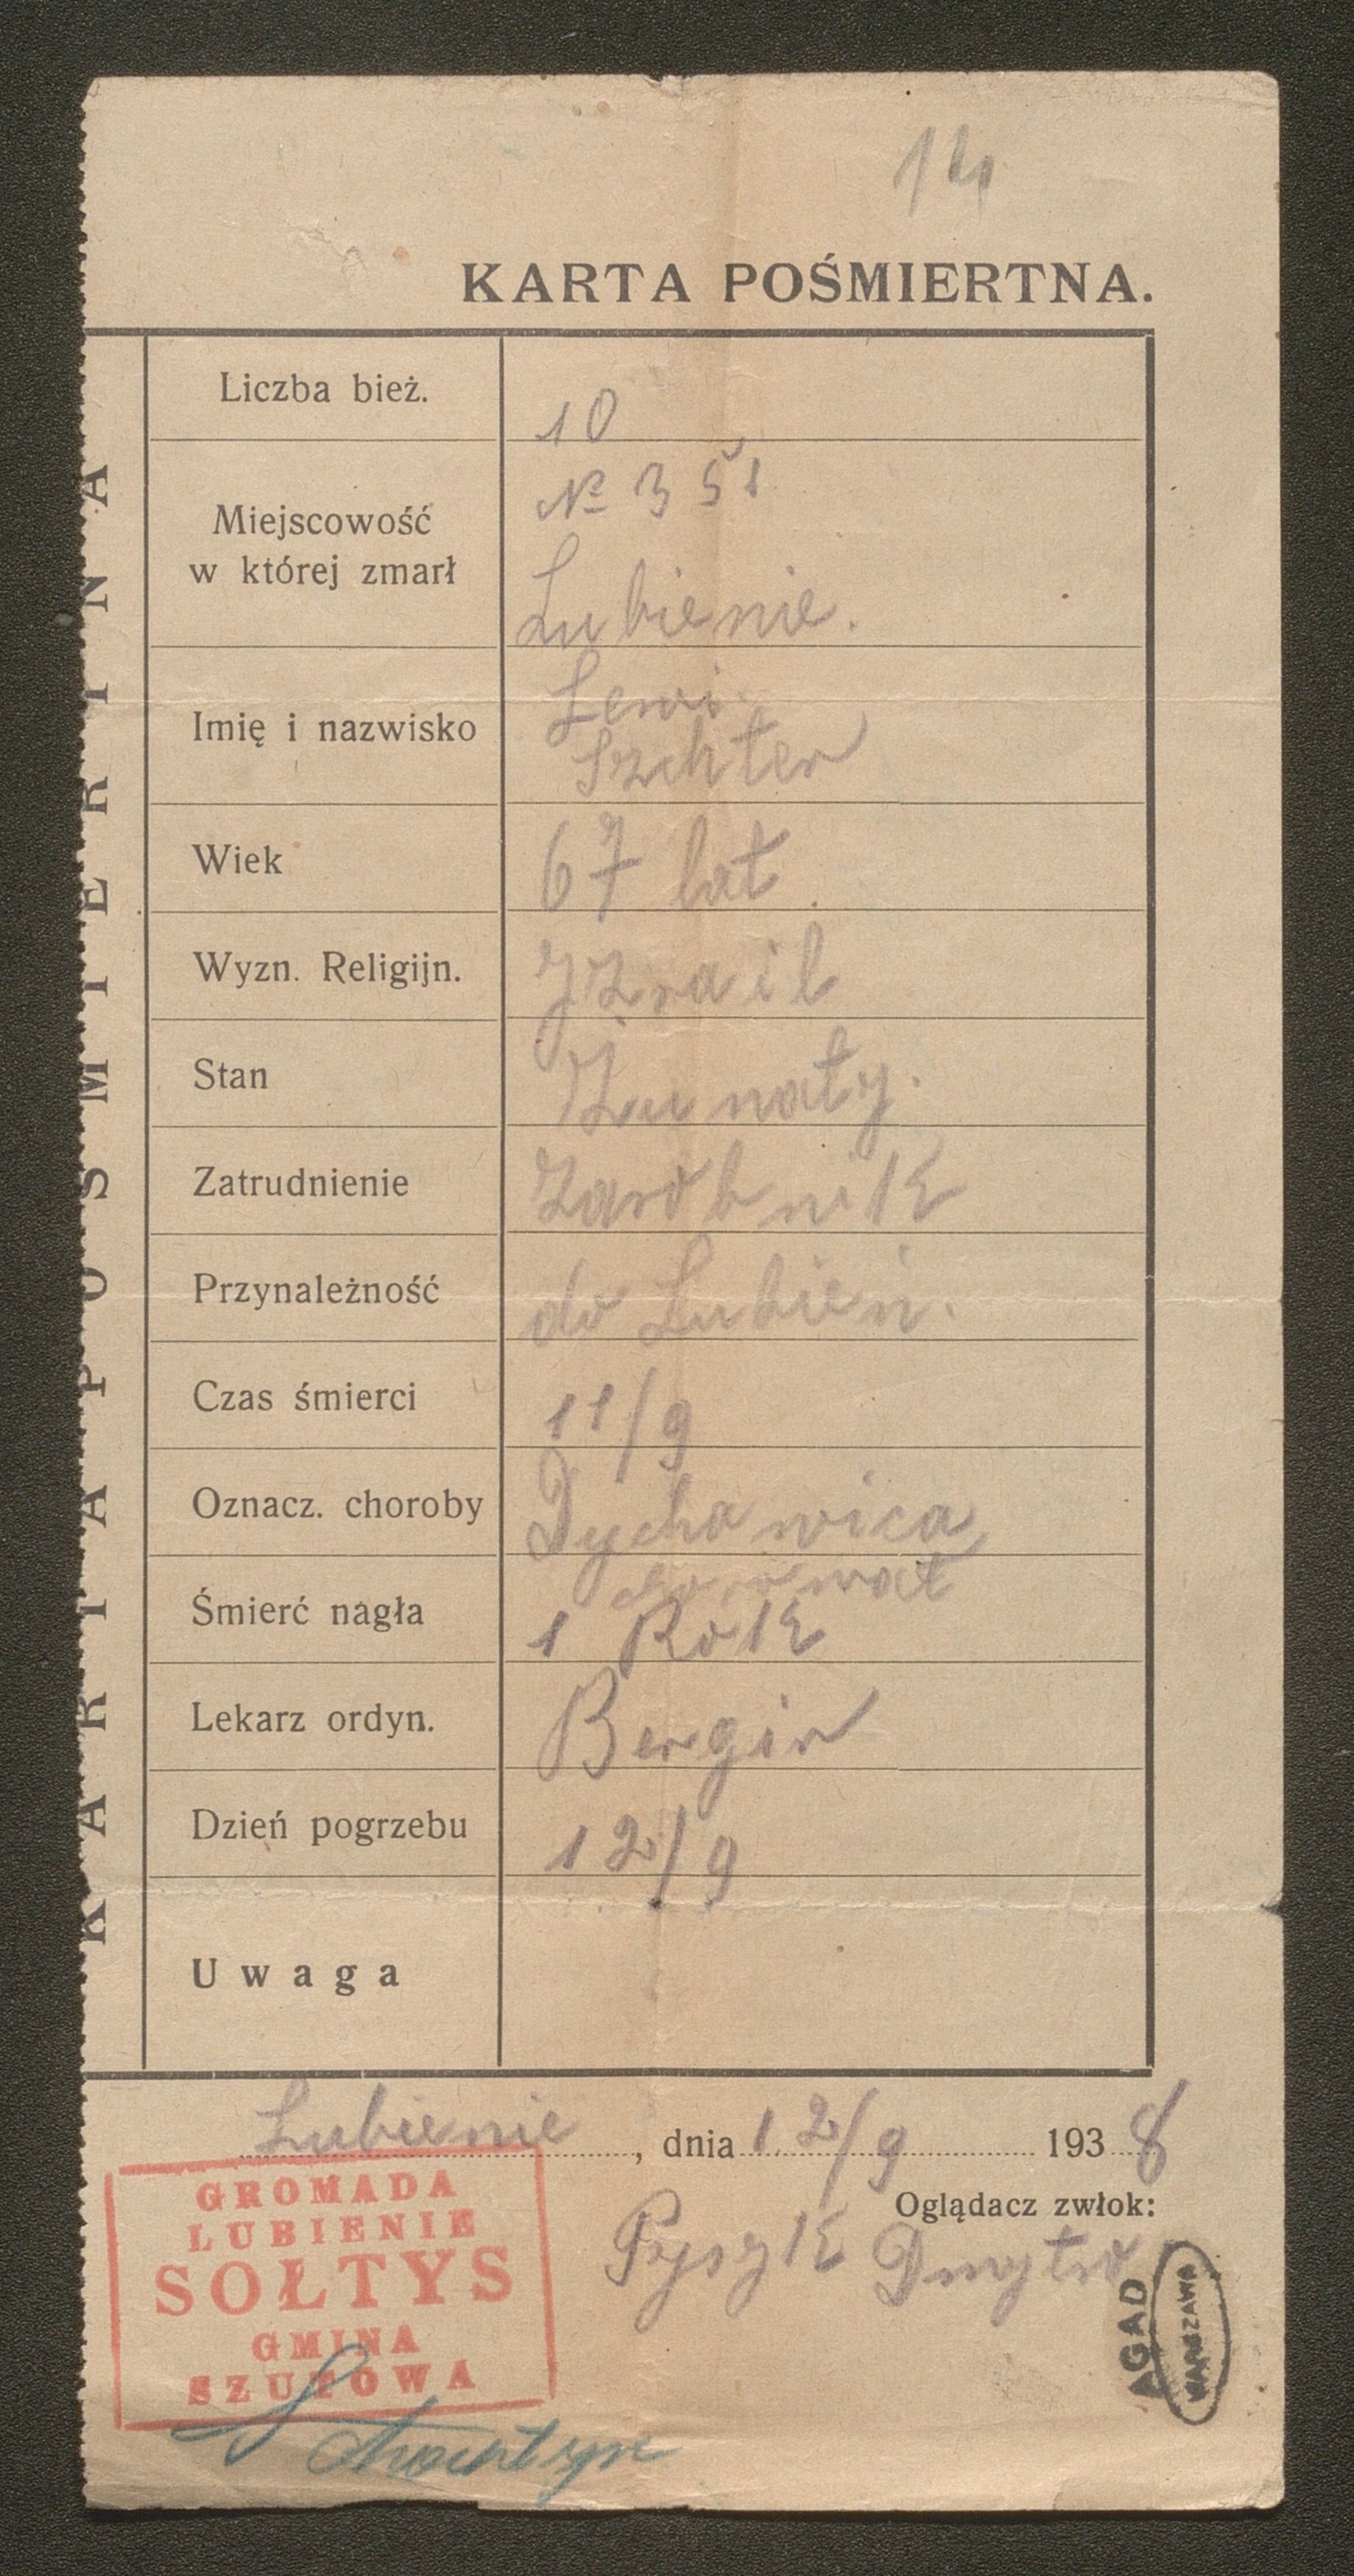 14
KARTA POŚMIERTNA.
KARTA POŚMIERTNA
Liczba bież.
10
Miejscowość
w której zmarł
№ 351
Lubienie.
Imię i nazwisko
Lewi
Szchter
Wiek
67 lat
Wyzn. Religijn.
Jzrail
Stan
Żunaty.
Zatrudnienie
Zarobnik
Przynależność
do Lubień.
Czas śmierci
11/9
Oznacz. choroby
Dychawica
Śmierć nagła
1 Rok
Lekarz ordyn.
Bergir
Dzień pogrzebu
12/9
Uwaga
Lubienie, dnia 12/9 1938
Oglądacz zwłok:
Pyszk Dmytro
GROMADA
LUBIENIE
SOŁTYS
GMINA
SZUTOWA
AGAD
WARSZAWA